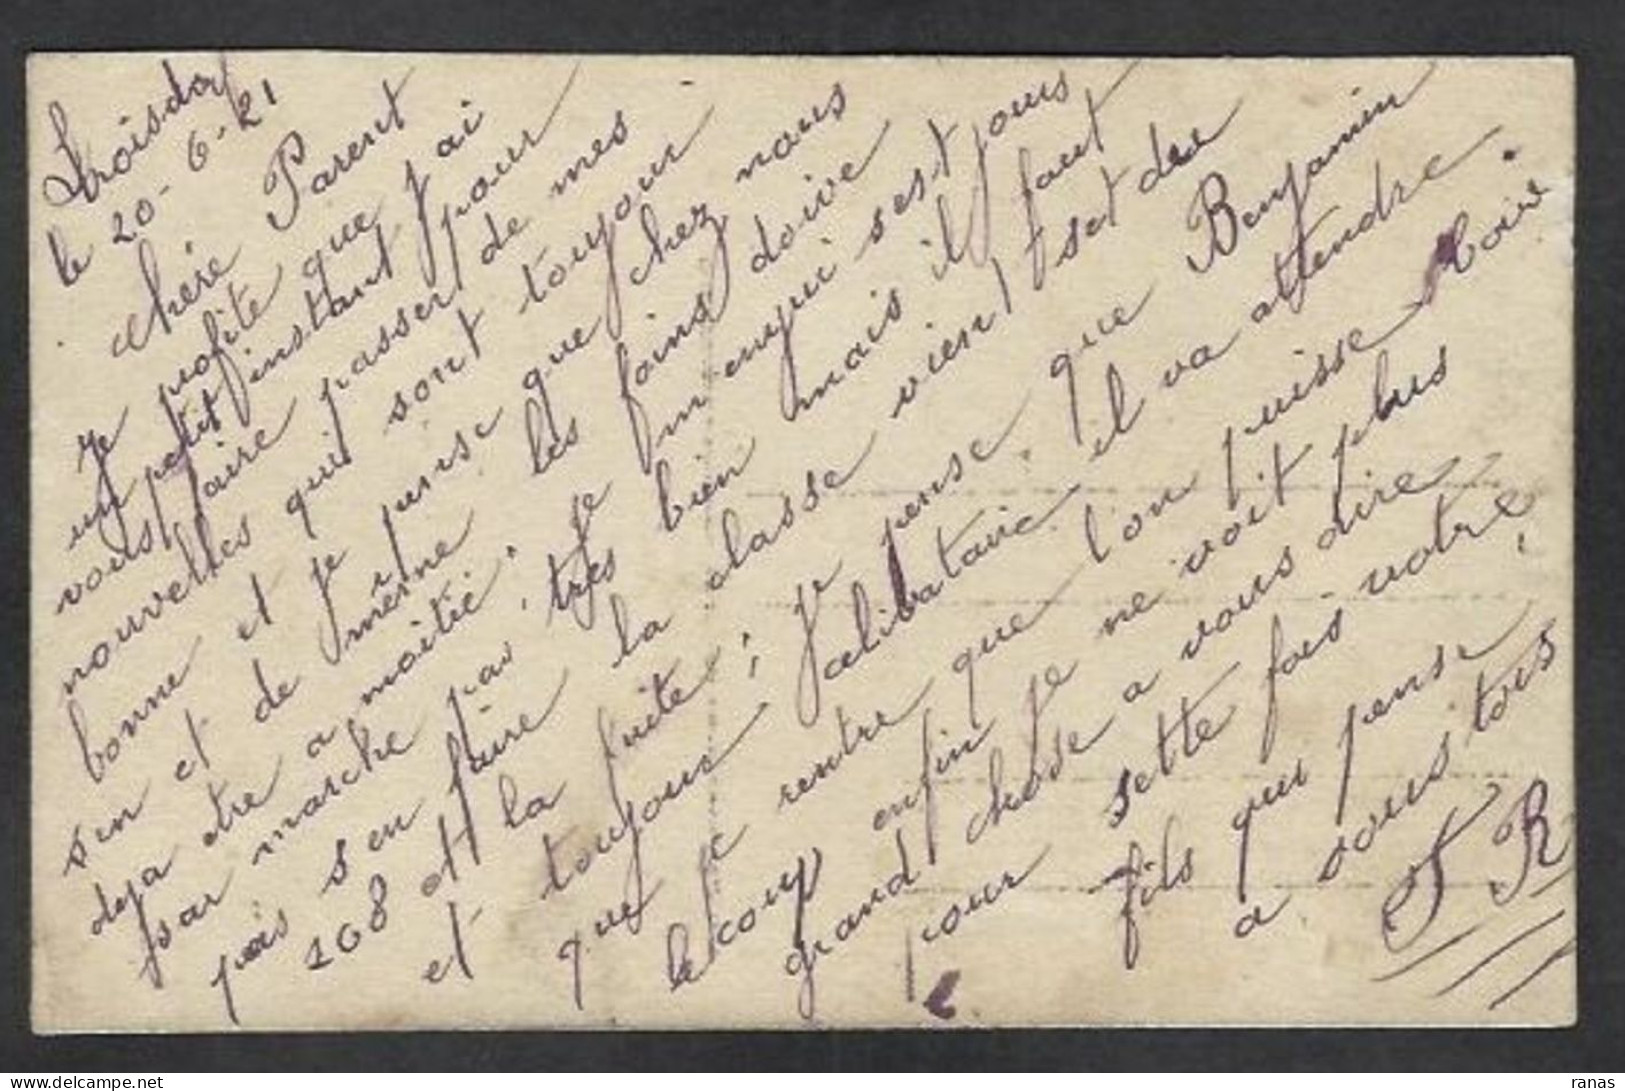 Troisdorf
le 20-6-21
chère Parent
Je profite que j'ai
un petit instant pour
vous faire passer de mes
nouvelles qui sont toujour
bonne et je pense que chez nous
s'en et de même les foins doive
deja etre a moitié. Je m'enqui sest jours
sar marche pas tres bien mais il faut
pas s'en faire la classe vient set des
168 et la fuite; je pense que Benjamin
et toujours Salibataire il va attendre
que je rentre que l'on puisse boire
le coup enfin je ne voit plus
grand chose a vous dire
pour sette fois votre
fils qui pense
a vous tous
J R
ranas